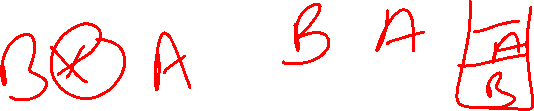 B * A B A
A
B